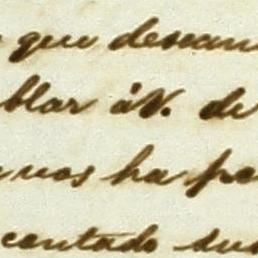 que desean
blar á V. de
nos ha pa
contado su